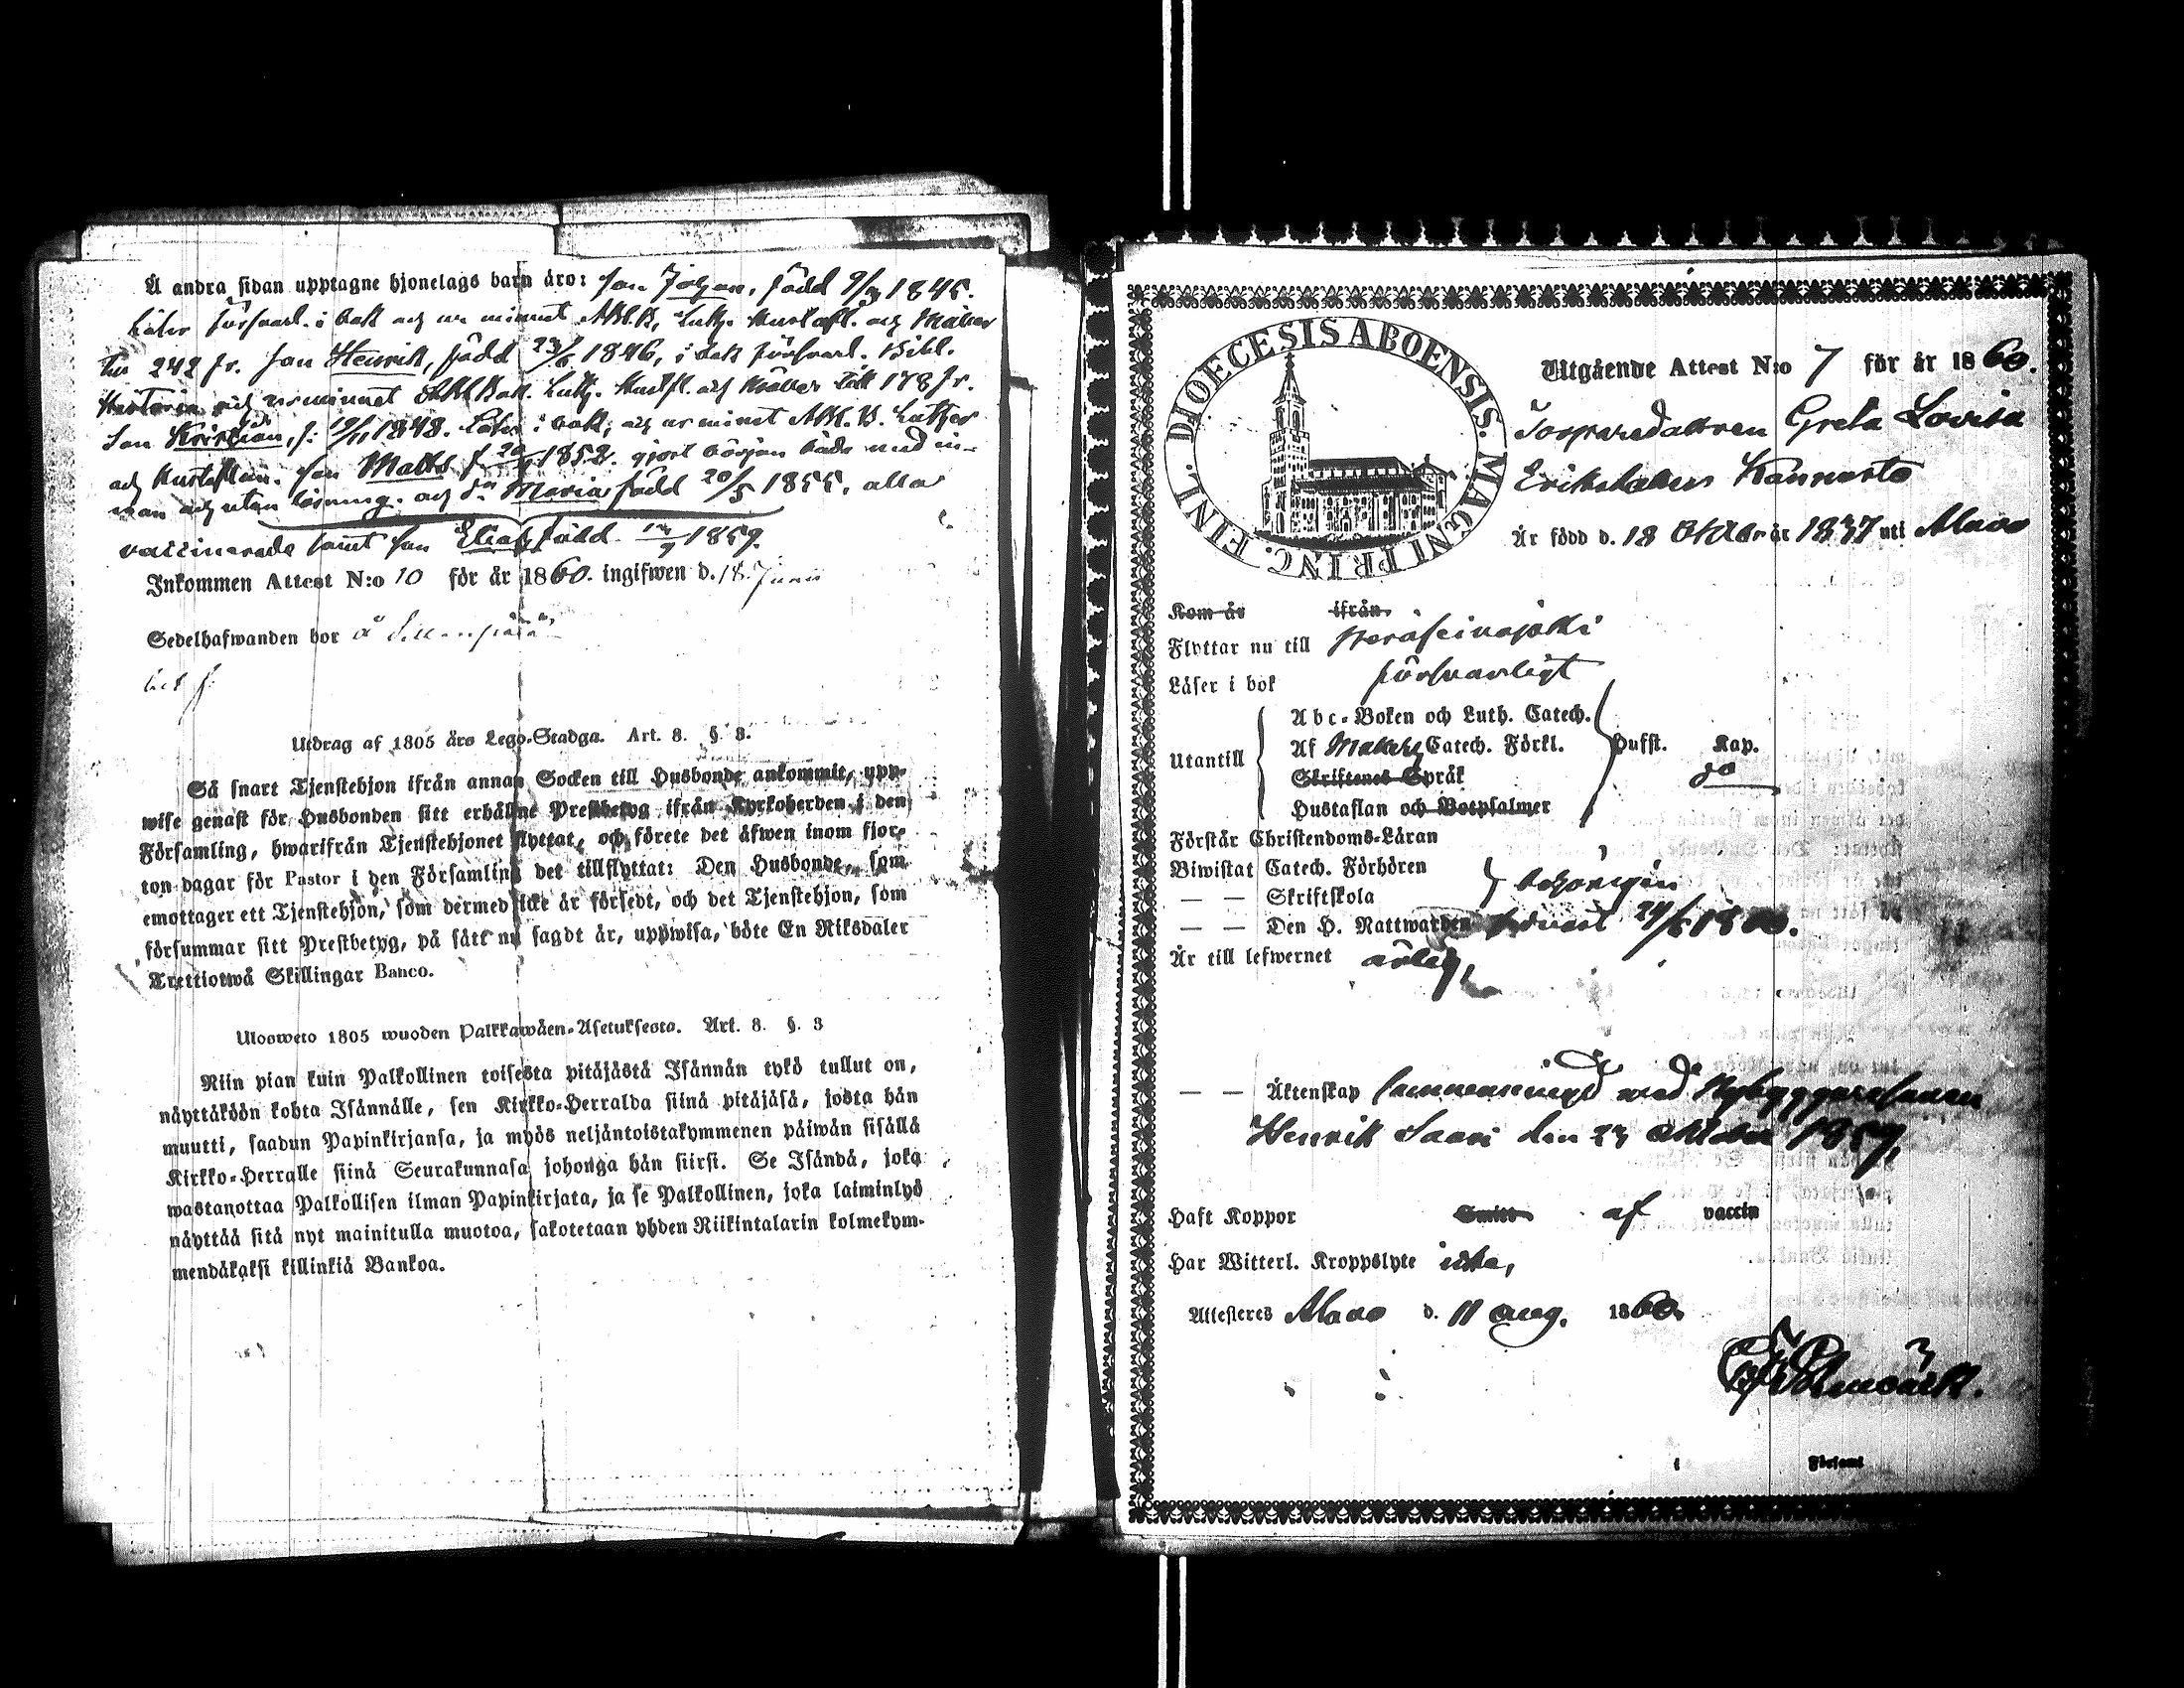 Å andra sidan upptagne hjonelags barn äro: son Johan, född 9/3 1845.
Läser försvarl. i bok och ur minnet Luth. Hustafl. och
242 fr. son Henrik, född 1846, i bok försvarl. Bibl.
och ur minnet Luth. Hustfl. och till 178 fr.
Son Kristian, f. 1848. Läser i bok, och ur minnet Luther
och Hustaflan. son Matts f. 1852. gjort början både med in-
nan och utan läsning. och dr Maria född 20/5 1855. alla
vaccinerade samt son Elias född 1859.
Inkommen Attest N:o 10 för år 1860. ingifwen d. 18 Juni
Sedelhafwanden bor å
Utdrag af 1805 års Lego-Stadga. Art. 8. §. 3.
Så snart Tjenstehjon ifrån annan Socken till Husbonde ankommit, upp-
wise genast för Husbonden sitt erhållne Prestbetyg ifrån Kyrkoherden i den
Församling, hwarifrån Tjenstehjonet flyttat, och förete det äfwen inom fjor-
ton dagar för Pastor i den Församling det tillflyttat: Den Husbonde, som
emottager ett Tjenstehjon, som dermed icke är försedt, och det Tjenstehjon, som
försummar sitt Prestbetyg, på sätt nu sagdt är, uppwisa, böte En Riksdaler
Trettiotwå Skillingar Banco.
Ulosweto 1805 wuoden Palkkawäen-Asetuksesta. Art. 8. §. 3
Niin pian kuin Palkollinen toisesta pitäjästä Isännän tykö tullut on,
näyttäköön kohta Isännälle, sen Kirkko-Herralda siinä pitäjäsä, josta hän
muutti, saadun Papinkirjansa, ja myös neljäntoistakymmenen päiwän sisällä
Kirkko-Herralle siinä Seurakunnasa johonga hän siirsi. Se Isändä, joka
wastanottaa Palkollisen ilman Papinkirjata, ja se Palkollinen, joka laiminlyö
näyttää sitä nyt mainitulla muotoa, sakotetaan yhden Riikintalarin kolmekym-
mendäkaksi killinkiä Bankoa.
DIOECESIS ABOENSIS. MAGNI PRINC. FINL.
Utgående Attest N:o 7 för år 1860.
Torparedottren Greta Lovisa
Eriksdotter Kannasto
Är född d. 18 Oktober år 1837 uti Alavo
Kom år ifrån
Flyttar nu till Peräseinäjoki
Läser i bok försvarligt
Utantill
Abc-Boken och Luth. Catech.
Af Catech. Förkl. Hufst. Kap.
Skriftenes Språk
Hustaflan och Botpsalmer
Förstår Christendoms-Läran
Biwistat Catech. Förhören
— — Skriftskola behörigen
— — Den H. Nattwarden senast 24/5 1860.
Är till lefwernet ärlig,
— — Äktenskap sammanvigd med Nybyggaresonen
Henrik Saari den 23 Oktober 1859,
Haft Koppor Smitt af vaccin
Har Witterl. Kroppslyte icke,
Attesteras Alavo d. 11 Aug. 1860.
Församl